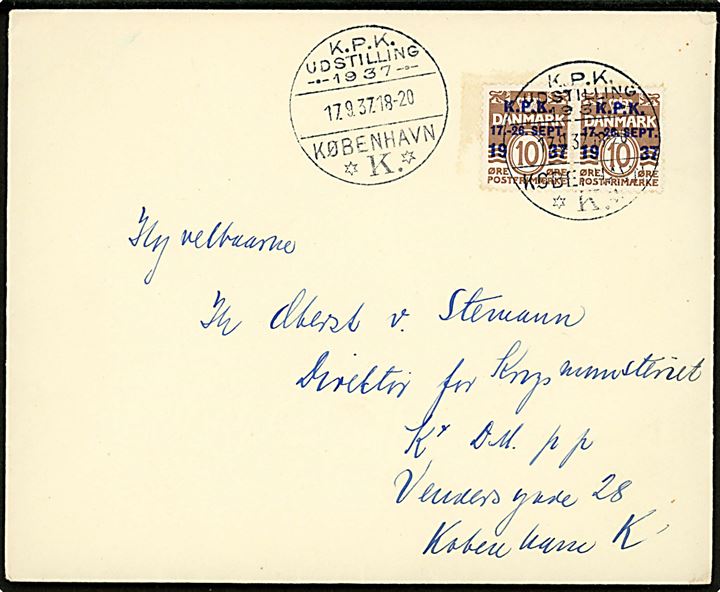 K.P.K.
UDSTILLING
1937
17.9.37.18-20
KØBENHAVN
K.
K.P.K.
UDSTILLING
K.
K.P.K.
DANMARK
17.-26. SEPT.
19 10 37
ØRE ØRE
POSTFRIMÆRKE
K.P.K.
DANMARK
17.-26. SEPT.
19 10 37
ØRE ØRE
POSTFRIMÆRKE
Høyvelbaarne
Hr Oberst v. Stemann
Direktør for Krigsministeriet
Kx DM. p p
Vendersgade 28
København K